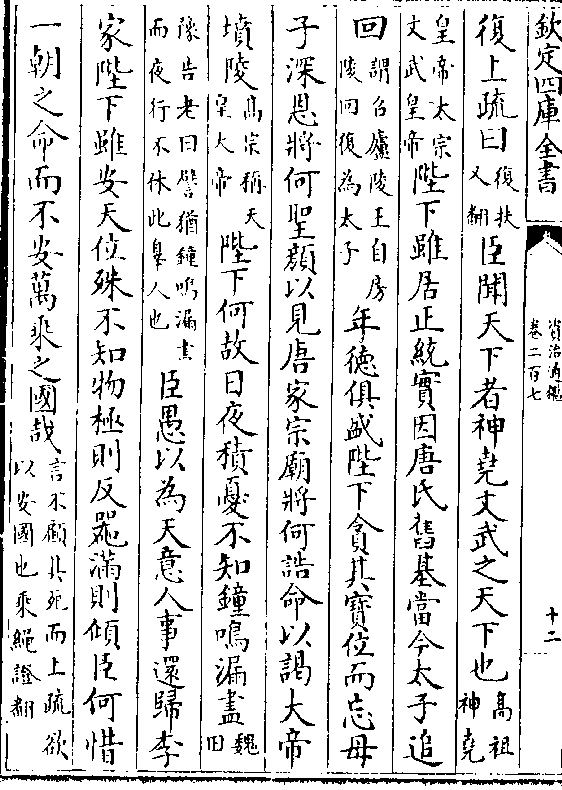 欽定四庫全書
資治通鑑
卷二百七
十二
復上疏曰復扶又翻臣聞天下者神堯文武之天下也高祖神堯
皇帝太宗文武皇帝陛下雖居正統實因唐氏舊基當今太子追
回謂召廬陵王自房陵回復為太子年德俱盛陛下貪其寶位而忘母
子深恩將何聖顏以見唐家宗廟將何誥命以謁大帝
墳陵高宗稱天皇大帝陛下何故日夜積憂不知鐘鳴漏盡魏田
豫告老曰譬猶鐘鳴漏盡而夜行不休此辠人也臣愚以為天意人事還歸李
家陛下雖安天位殊不知物極則反器滿則傾臣何惜
一朝之命而不安萬乘之國哉言不顧其死而上疏欲以安國也乘繩證翻